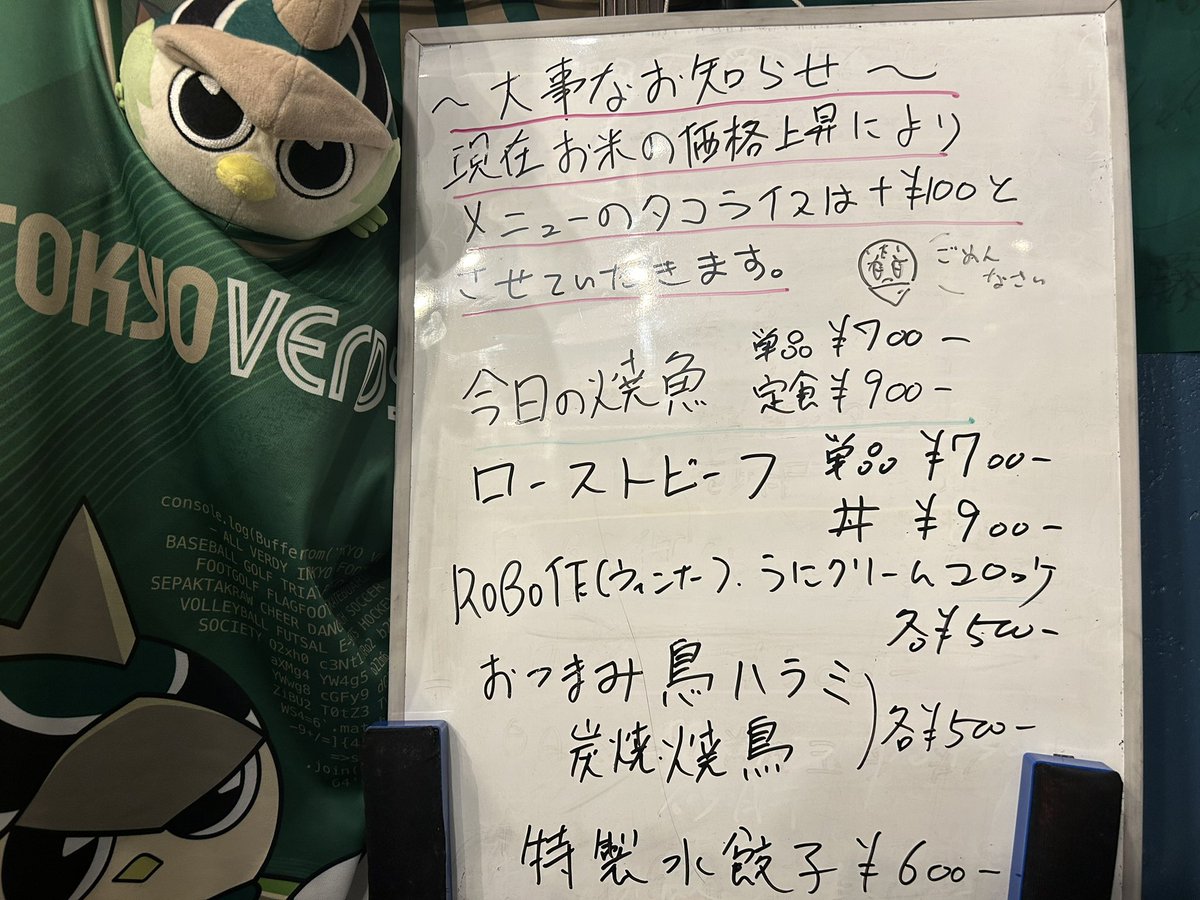 ～大事なお知らせ～
現在お米の価格上昇により
メニューのタコライスは+¥100と
させていただきます。
ごめん
なさい
今日の焼魚 単品 ¥700-
定食 ¥900-
ローストビーフ 単品 ¥700-
丼 ¥900-
ROBO作(ウィンナー). うにクリームコロッケ
各¥500-
おつまみ鳥ハラミ
炭焼焼鳥 各¥500-
特製水餃子 ¥600-
TOKYO VERDY
console.log(Buffer
- ALL VERDY IN
BASEBALL GOLF TRIA
FOOTGOLF FLAGFOO
SEPAKTAKRAW CHEER DANC SOCCER
VOLLEYBALL FUTSAL E
SOCIETY